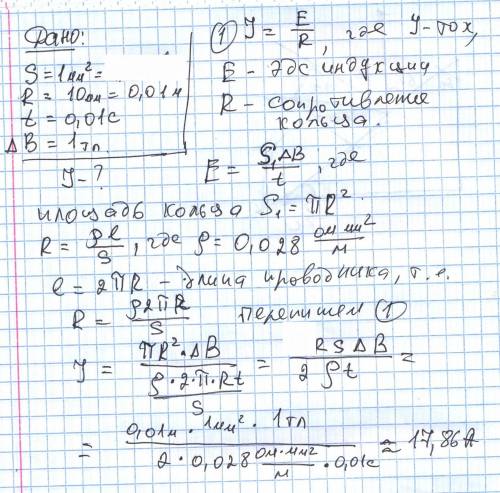 Дано:
S = 1мм² =
R = 10мм = 0,01м
t = 0,01с
ΔB = 1тл
J - ?
① J = E/R, где J - ток,
E - эдс индукции
R - сопротивление
кольца.
E = S₁ΔB/t, где
площадь кольца S₁ = πR².
R = ρl/S, где ρ = 0,028 ом мм²/м
l = 2πR - длина проводника, т.е.
R = ρ2πR/S перепишем ①
J = πR²·ΔB/(ρ·2·π·Rt/S) = RSΔB/2ρt =
= 0,01м · 1мм² · 1тл/(2 · 0,028 ом·мм²/м · 0,01с) ≈ 17,86А